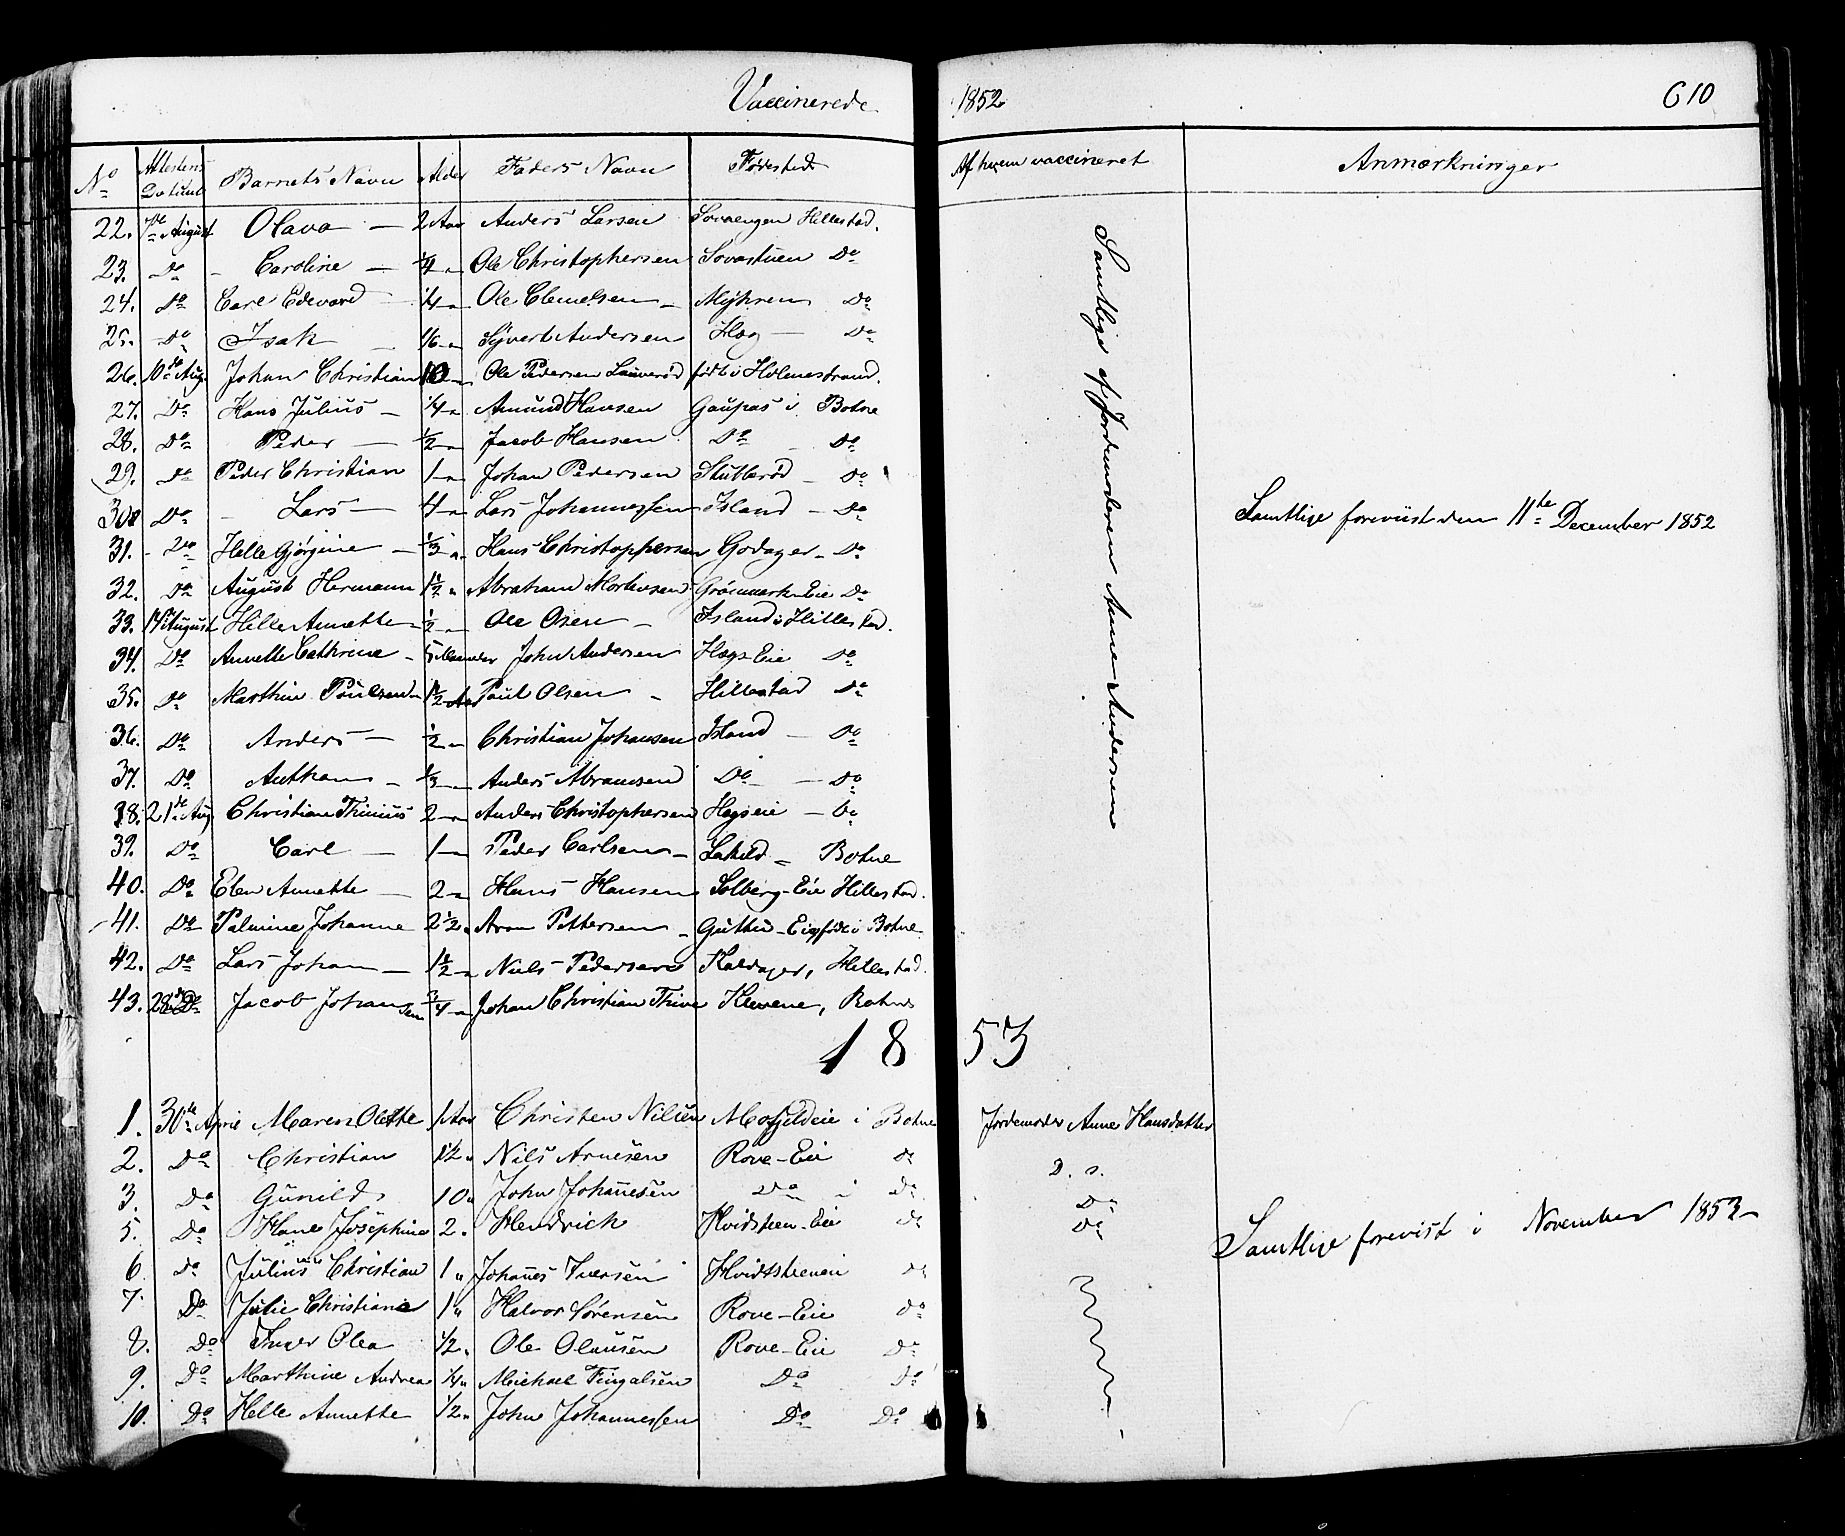 Vaccinerede 1852 610
No Attestens Datum Barnets Navn Alder Faders Navn Fødested Af hvem vaccineret Anmærkninger
22. 7de August Olava — 2 Aar Anders Larsen Hillestad.
23. Do Caroline — 1/4 Ole Christophersen Sovastuen Do
24. Do Carl Edevard 1/4 Ole Clemetsen Myhren Do
25. Do Isak 1/6 Syvert Andersen Hæg — Do
26. 10de Aug. Johan Christian 10 Ole Pedersen født i Holmestrand.
27. Do Hans Julius — 1/4 Amund Hansen Gaupas i Botne
28. Do Peder — 1/2 Jacob Hansen Do Do
29. Do Peder Christian 1 Johan Pedersen Stutterød Do
30. Do Lars — 4 Lars Johannessen Island — Do
31. Do Helle Gjørgine — 1/3 Hans Christophersen Godager — Do
32. Do August Hermann 1 1/2 Abraham Mortensen Eie Do
33. 14de August Helle Annette 1/2 Ole Osen — Island i Hillestad.
34. Do Annette Cathrine — 5 Maaneder John Andersen Hægs Eie Do
35. Do Marthin Poulsen 1 1/2 Aar Poul Olsen — Hillestad Do
36. Do Anders — 1/2 Christian Johansen Island — Do
37. Do Anthon — 1/3 Anders Abramsen Do — Do
38. 21de Aug Christian Thinius 2 Anders Christophersen Hægseie — Do
39. Do Carl — 1 Peder Carlsen — Botne
40. Do Elen Annette — 2 Hans Hansen Solberg-Eie Hillestad.
41. Do Palmine Johanne 2 1/2 Aron Pettersen — født i Botne
42. Do Lars Johan — 1 1/2 Niels Pedersen Kaldager, Hillestad.
43. 28de Do Jacob Johansen 3/4 Johan Christian Thive Klevene, Botne
Samtlige af Jordemoderen Anne Andersen
Samtlige foreviist den 11te December 1852
1853
1. 30te April Maren Olette 1 Aar Christen Nilsen i Botne Jordemoder Anne Hansdatter
2. Do Christian 1 1/2 Nils Arnesen Rove-Eie do D. s.
3. Do Gunild 10 John Johannesen Do i do Do
5. Do Hane Josephine 2 Hendrich Hvidsteen-Eie do Do
6. Do Julius Christian 1 Johannes Iversen Hvidtstenen do
7. Do Julie Christiane 1 Halvor Sørensen Rove-Eie do
8. Do Inger Olea 1/2 Ole Olausen Rove-Eie do
9. Do Marthine Andrea 1/4 Michael Fingalsen Do do
10. Do Helle Annette 1/2 John Johannessen Do Do
Samtlige forevist i November 1853